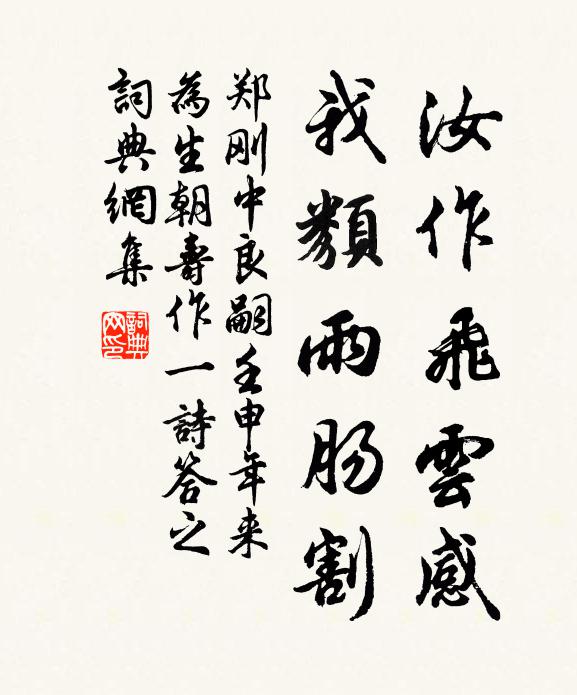 汝作飛雲感
我類雨肠割
郑刚中良嗣壬申年来
為生朝壽作一詩答之
詞典網集
詞典网印